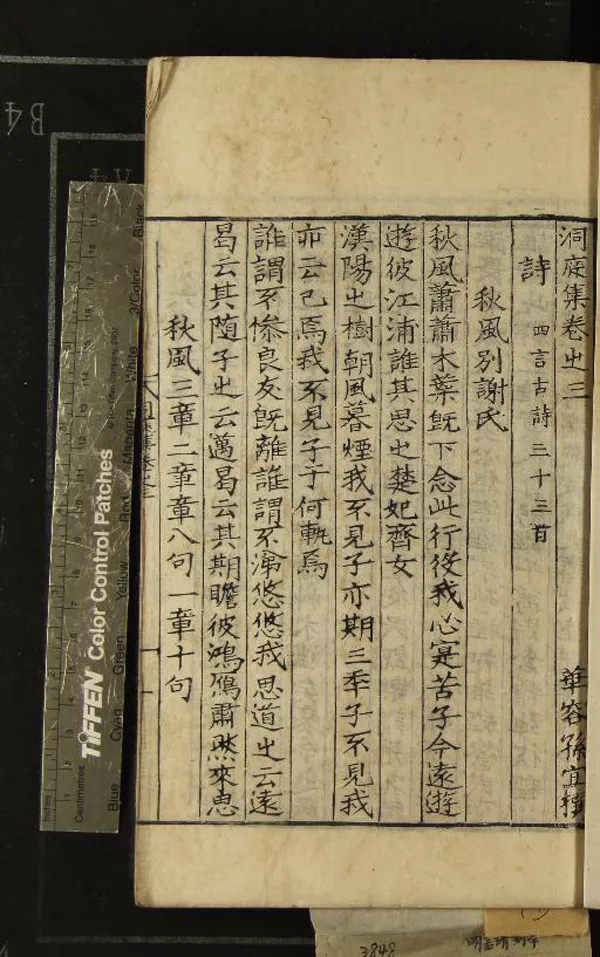 洞庭集卷之三
華容孫宜撰
詩 四言古詩三十三首
秋風別謝氏
秋風蕭蕭木葉旣下念此行役我心寔苦子今遠遊
遊彼江浦誰其思之楚妃齊女
漢陽之樹朝風暮煙我不見子亦期三季子不見我
亦云已焉我不見子于何執焉
誰謂不慘良友旣離誰謂不渝悠悠我思道之云遠
曷云其隨子之云邁曷云其期瞻彼鴻鴈肅然來思
秋風三章二章章八句一章十句
B4
A4
TIFFEN Color Control Patches
Inches
Centimetres
Blue
Cyan
Green
Yellow
Red
Magenta
White
3/Color
Black
3848